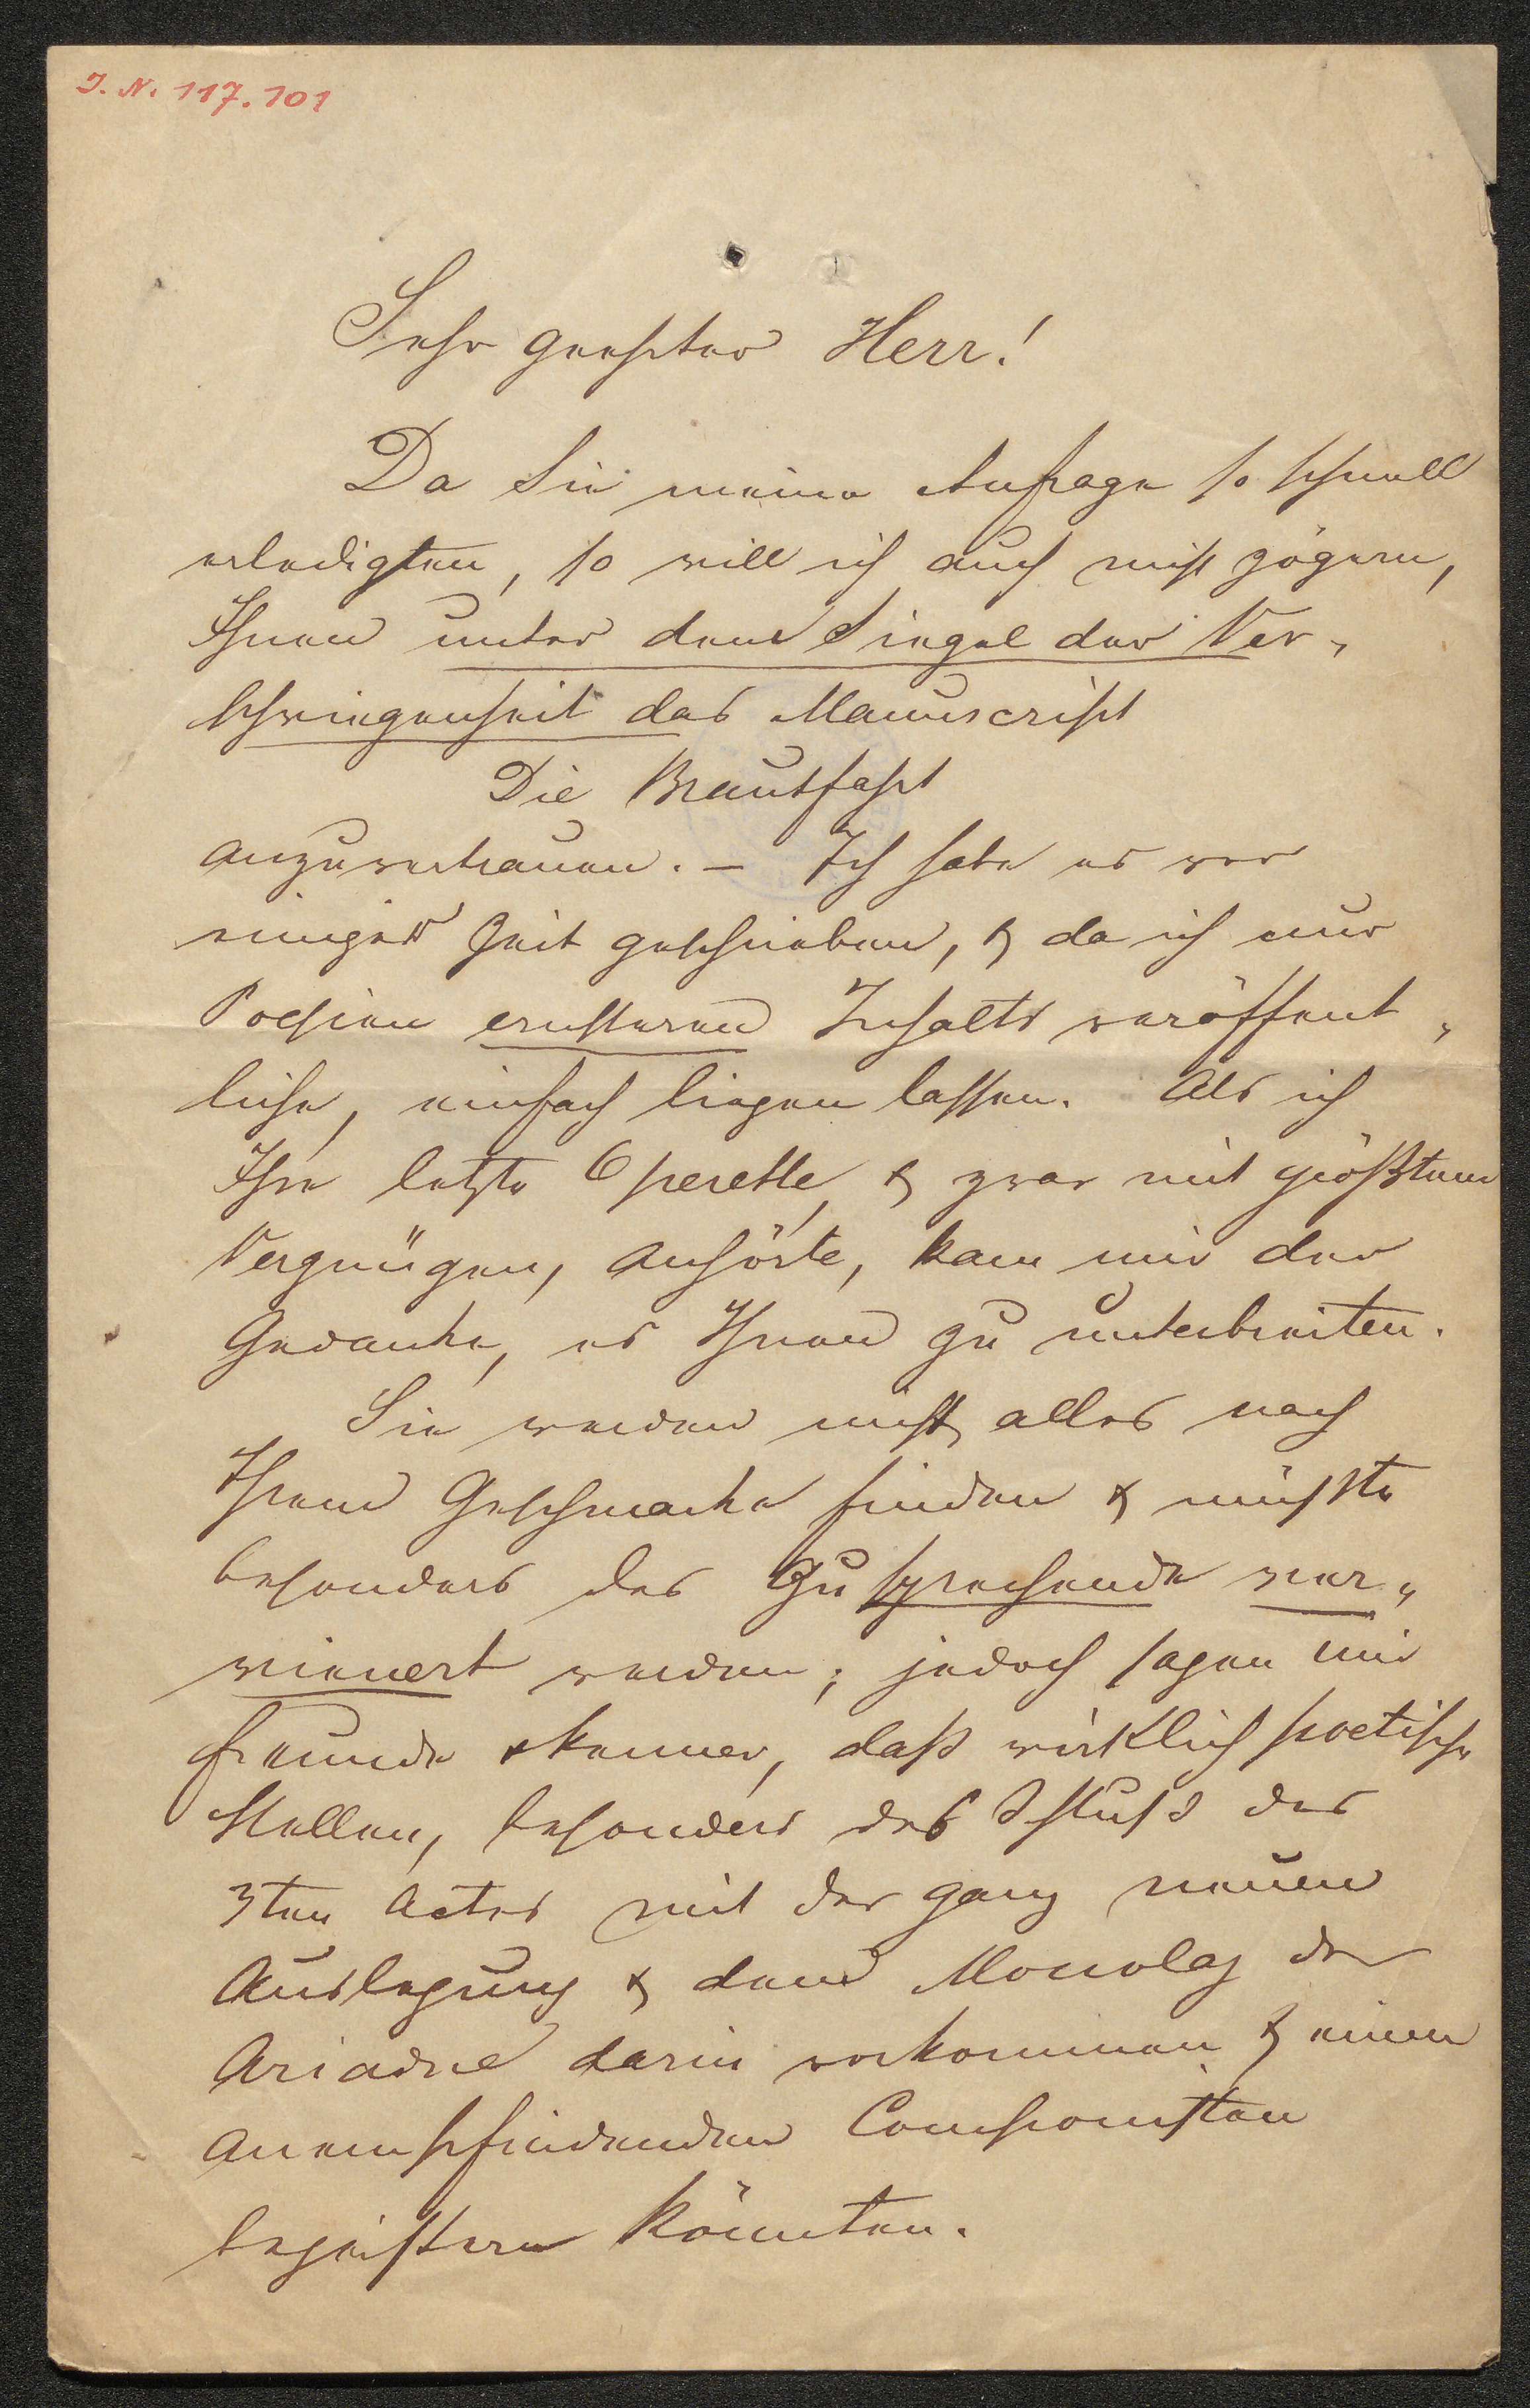 J. N. 117.101
Sehr geehrter Herr!
Da Sie meine Anfrage so schnell
erledigten, so will ich auch nicht zögern,
Ihnen unter dem Siegel der Ver„
schwiegenheit das Manuscript
Die Brautfahrt
anzuvertrauen. – Ich habe es vor
einiger Zeit geschrieben, & da ich nur
Poesien ernsteren Inhalts veröffent„
liche, einfach liegen lassen. Als ich
Ihre letzte Operette, & zwar mit größtem
Vergnügen, anhörte, kam mir der
Gedanke, es Ihnen zu unterbreiten.
Sie werden nicht alles nach
Ihrem Geschmacke finden & müßte
besonders das Zusprechende ver„
wienert werden; jedoch sagen mir
Freunde & Kenner, daß wirklich poetische
Stellen, besonders das Schluß des
3ten Actes mit der ganz neuen
Auslegung & dem Monolog der
Ariadne darin vorkommen & einen
anempfindenden Componisten
begeistern könnten.